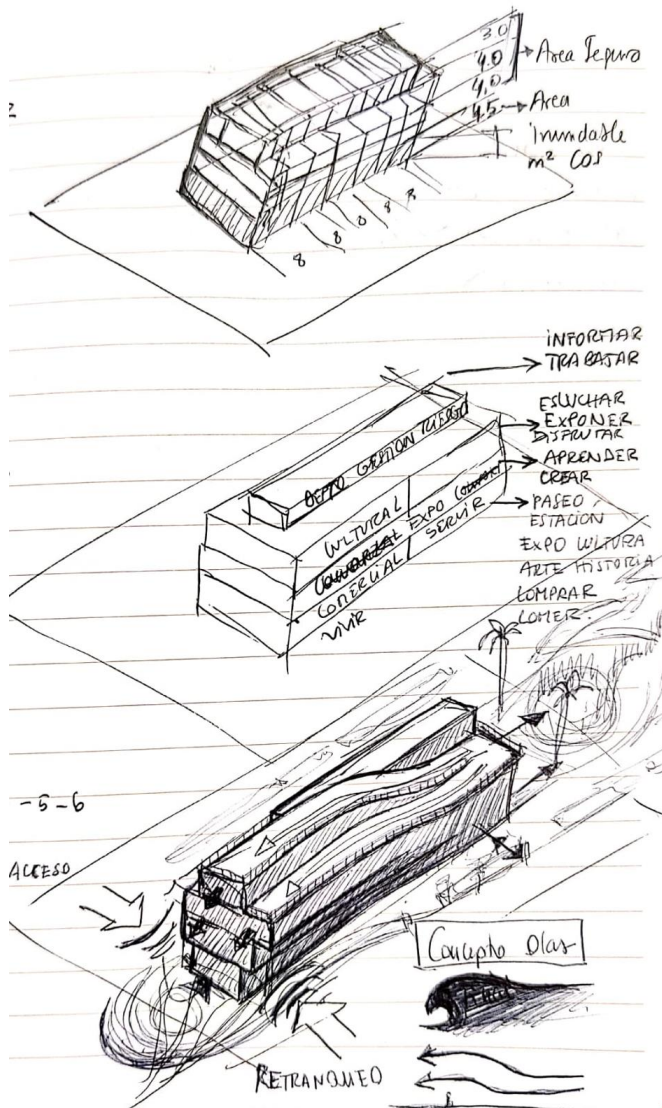 3.0
4.0 → Area Seguro
4.0
4.5 → Area
Inundable
m² COS
8 8 8 8 8
INFORMAR
TRABAJAR
ESCUCHAR
EXPONER
DISFRUTAR
APRENDER
CREAR
PASEO
ESTACION
EXPO CULTURA
ARTE HISTORIA
COMPRAR
COMER.
DEPTO GESTION RIESGO
CULTURAL
EXPO
COMERCIAL SERVIR
VIVIR
-5-6
ACCESO
RETRANQUEO
Concepto Olas